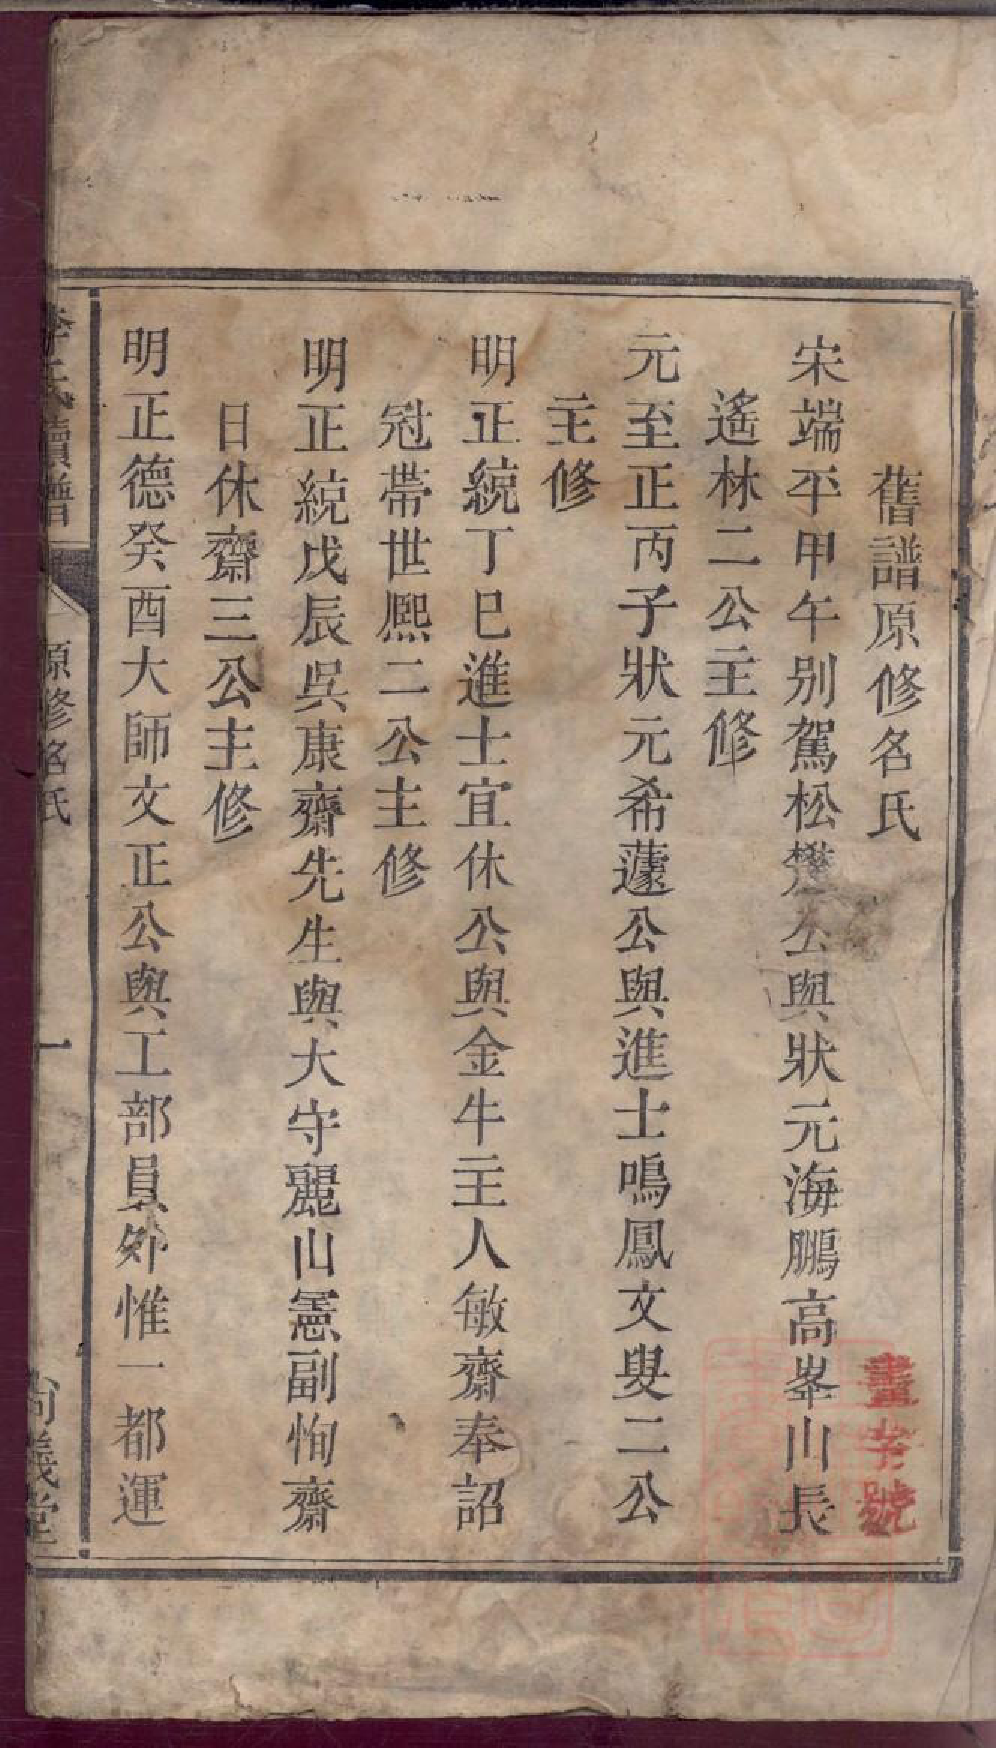 舊譜原修名氏
畫字號
宋端平甲午别駕松㩀公與狀元海鵬高峯山長
遙林二公主修
元至正丙子狀元希蘧公與進士鳴鳳文叟二公
主修
明正統丁巳進士宜休公與金牛主人敏齋奉詔
冠帶世熈二公主修
明正統戊辰吳康齋先生與大守麗山憲副恂齋
日休齋三公主修
明正德癸酉大師文正公與工部員外惟一都運
李氏續譜
原修名氏
一
尚義堂